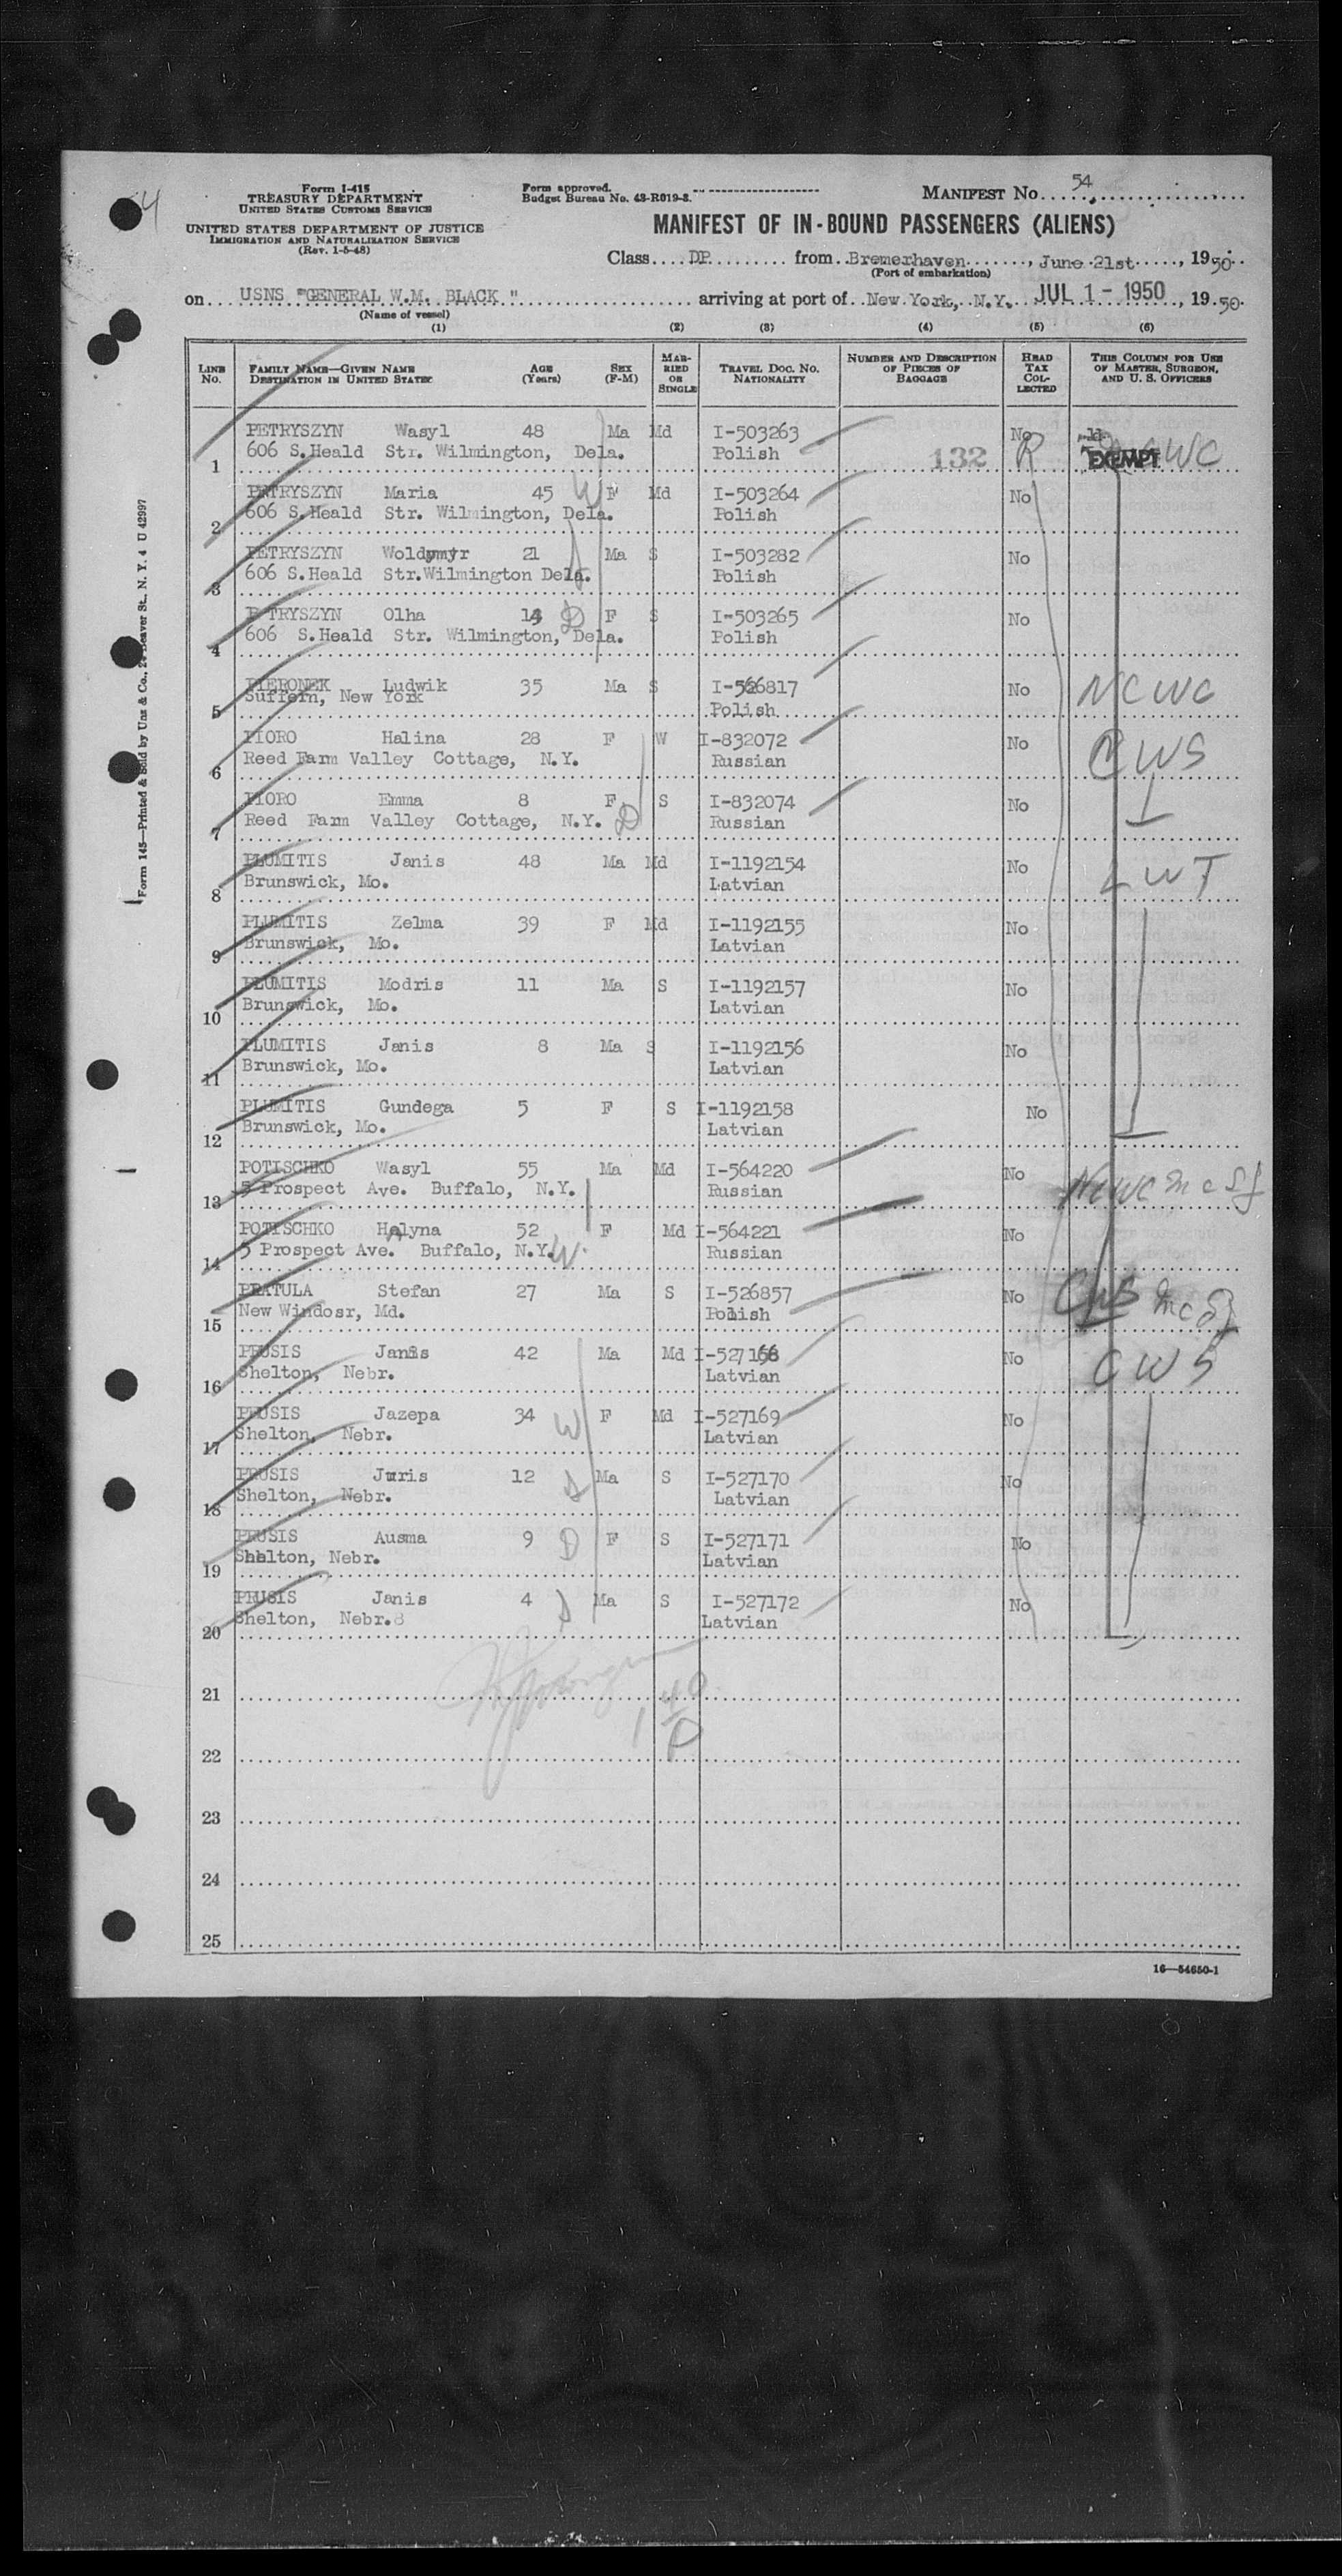 Form I-415
TREASURY DEPARTMENT
UNITED STATES CUSTOMS SERVICE
UNITED STATES DEPARTMENT OF JUSTICE
IMMIGRATION AND NATURALIZATION SERVICE
(Rev. 1-5-48)
Form approved.
Budget Bureau No. 43-R019-3.
MANIFEST No. 54
MANIFEST OF IN-BOUND PASSENGERS (ALIENS)
Class DP from Bremerhaven, June 21st, 1950
(Port of embarkation)
on USNS "GENERAL W.M. BLACK" arriving at port of New York, N.Y. JUL 1 - 1950, 1950
(Name of vessel)
(1) (2) (3) (4) (5) (6)
LINE No. FAMILY NAME—GIVEN NAME DESTINATION IN UNITED STATES AGE (Years) SEX (F-M) MARRIED OR SINGLE TRAVEL DOC. NO. NATIONALITY NUMBER AND DESCRIPTION OF PIECES OF BAGGAGE HEAD TAX COLLECTED THIS COLUMN FOR USE OF MASTER, SURGEON, AND U. S. OFFICERS
PETRYSZYN Wasyl 48 Ma Md I-503263 No
1 606 S.Heald Str. Wilmington, Dela. Polish 132 R EXEMPT WC
PETRYSZYN Maria 45 W F Md I-503264 No
2 606 S.Heald Str. Wilmington, Dela. Polish
PETRYSZYN Woldymyr 21 Ma S I-503282 No
3 606 S.Heald Str.Wilmington Dela. Polish
PETRYSZYN Olha 14 D F S I-503265 No
4 606 S.Heald Str. Wilmington, Dela. Polish
PIERONEK Ludwik 35 Ma S I-566817 No NCWC
5 Suffern, New York Polish
PIORO Halina 28 F W I-832072 No CWS
6 Reed Farm Valley Cottage, N.Y. Russian
PIORO Emma 8 F S I-832074 No
7 Reed Farm Valley Cottage, N.Y. D Russian
PLUMITIS Janis 48 Ma Md I-1192154 No LWF
8 Brunswick, Mo. Latvian
PLUMITIS Zelma 39 F Md I-1192155 No
9 Brunswick, Mo. Latvian
PLUMITIS Modris 11 Ma S I-1192157 No
10 Brunswick, Mo. Latvian
PLUMITIS Janis 8 Ma S I-1192156 No
11 Brunswick, Mo. Latvian
PLUMITIS Gundega 5 F S I-1192158 No
12 Brunswick, Mo. Latvian
POTISCHKO Wasyl 55 Ma Md I-564220 No NCWC
13 5 Prospect Ave. Buffalo, N.Y. Russian
POTISCHKO Halyna 52 F Md I-564221 No
14 5 Prospect Ave. Buffalo, N.Y. W Russian
PRATULA Stefan 27 Ma S I-526857 No CWS
15 New Windosr, Md. Polish
PRUSIS Janis 42 Ma Md I-527168 No CWS
16 Shelton, Nebr. Latvian
PRUSIS Jazepa 34 W F Md I-527169 No
17 Shelton, Nebr. Latvian
PRUSIS Juris 12 S Ma S I-527170 No
18 Shelton, Nebr. Latvian
PRUSIS Ausma 9 D F S I-527171 No
19 Shelton, Nebr. Latvian
PRUSIS Janis 4 S Ma S I-527172 No
20 Shelton, Nebr. Latvian
21
22
23
24
25
16—54650-1